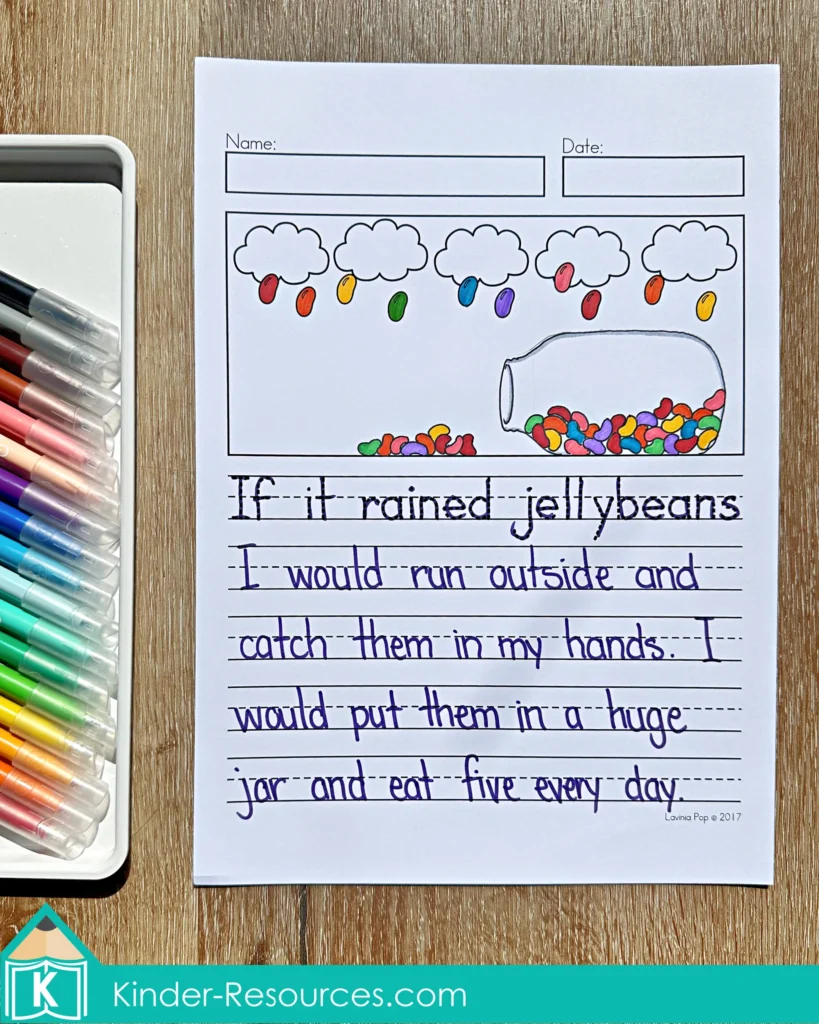 Name:
Date:
If it rained jellybeans
I would run outside and
catch them in my hands. I
would put them in a huge
jar and eat five every day.
Lavinia Pop © 2017
K
Kinder-Resources.com